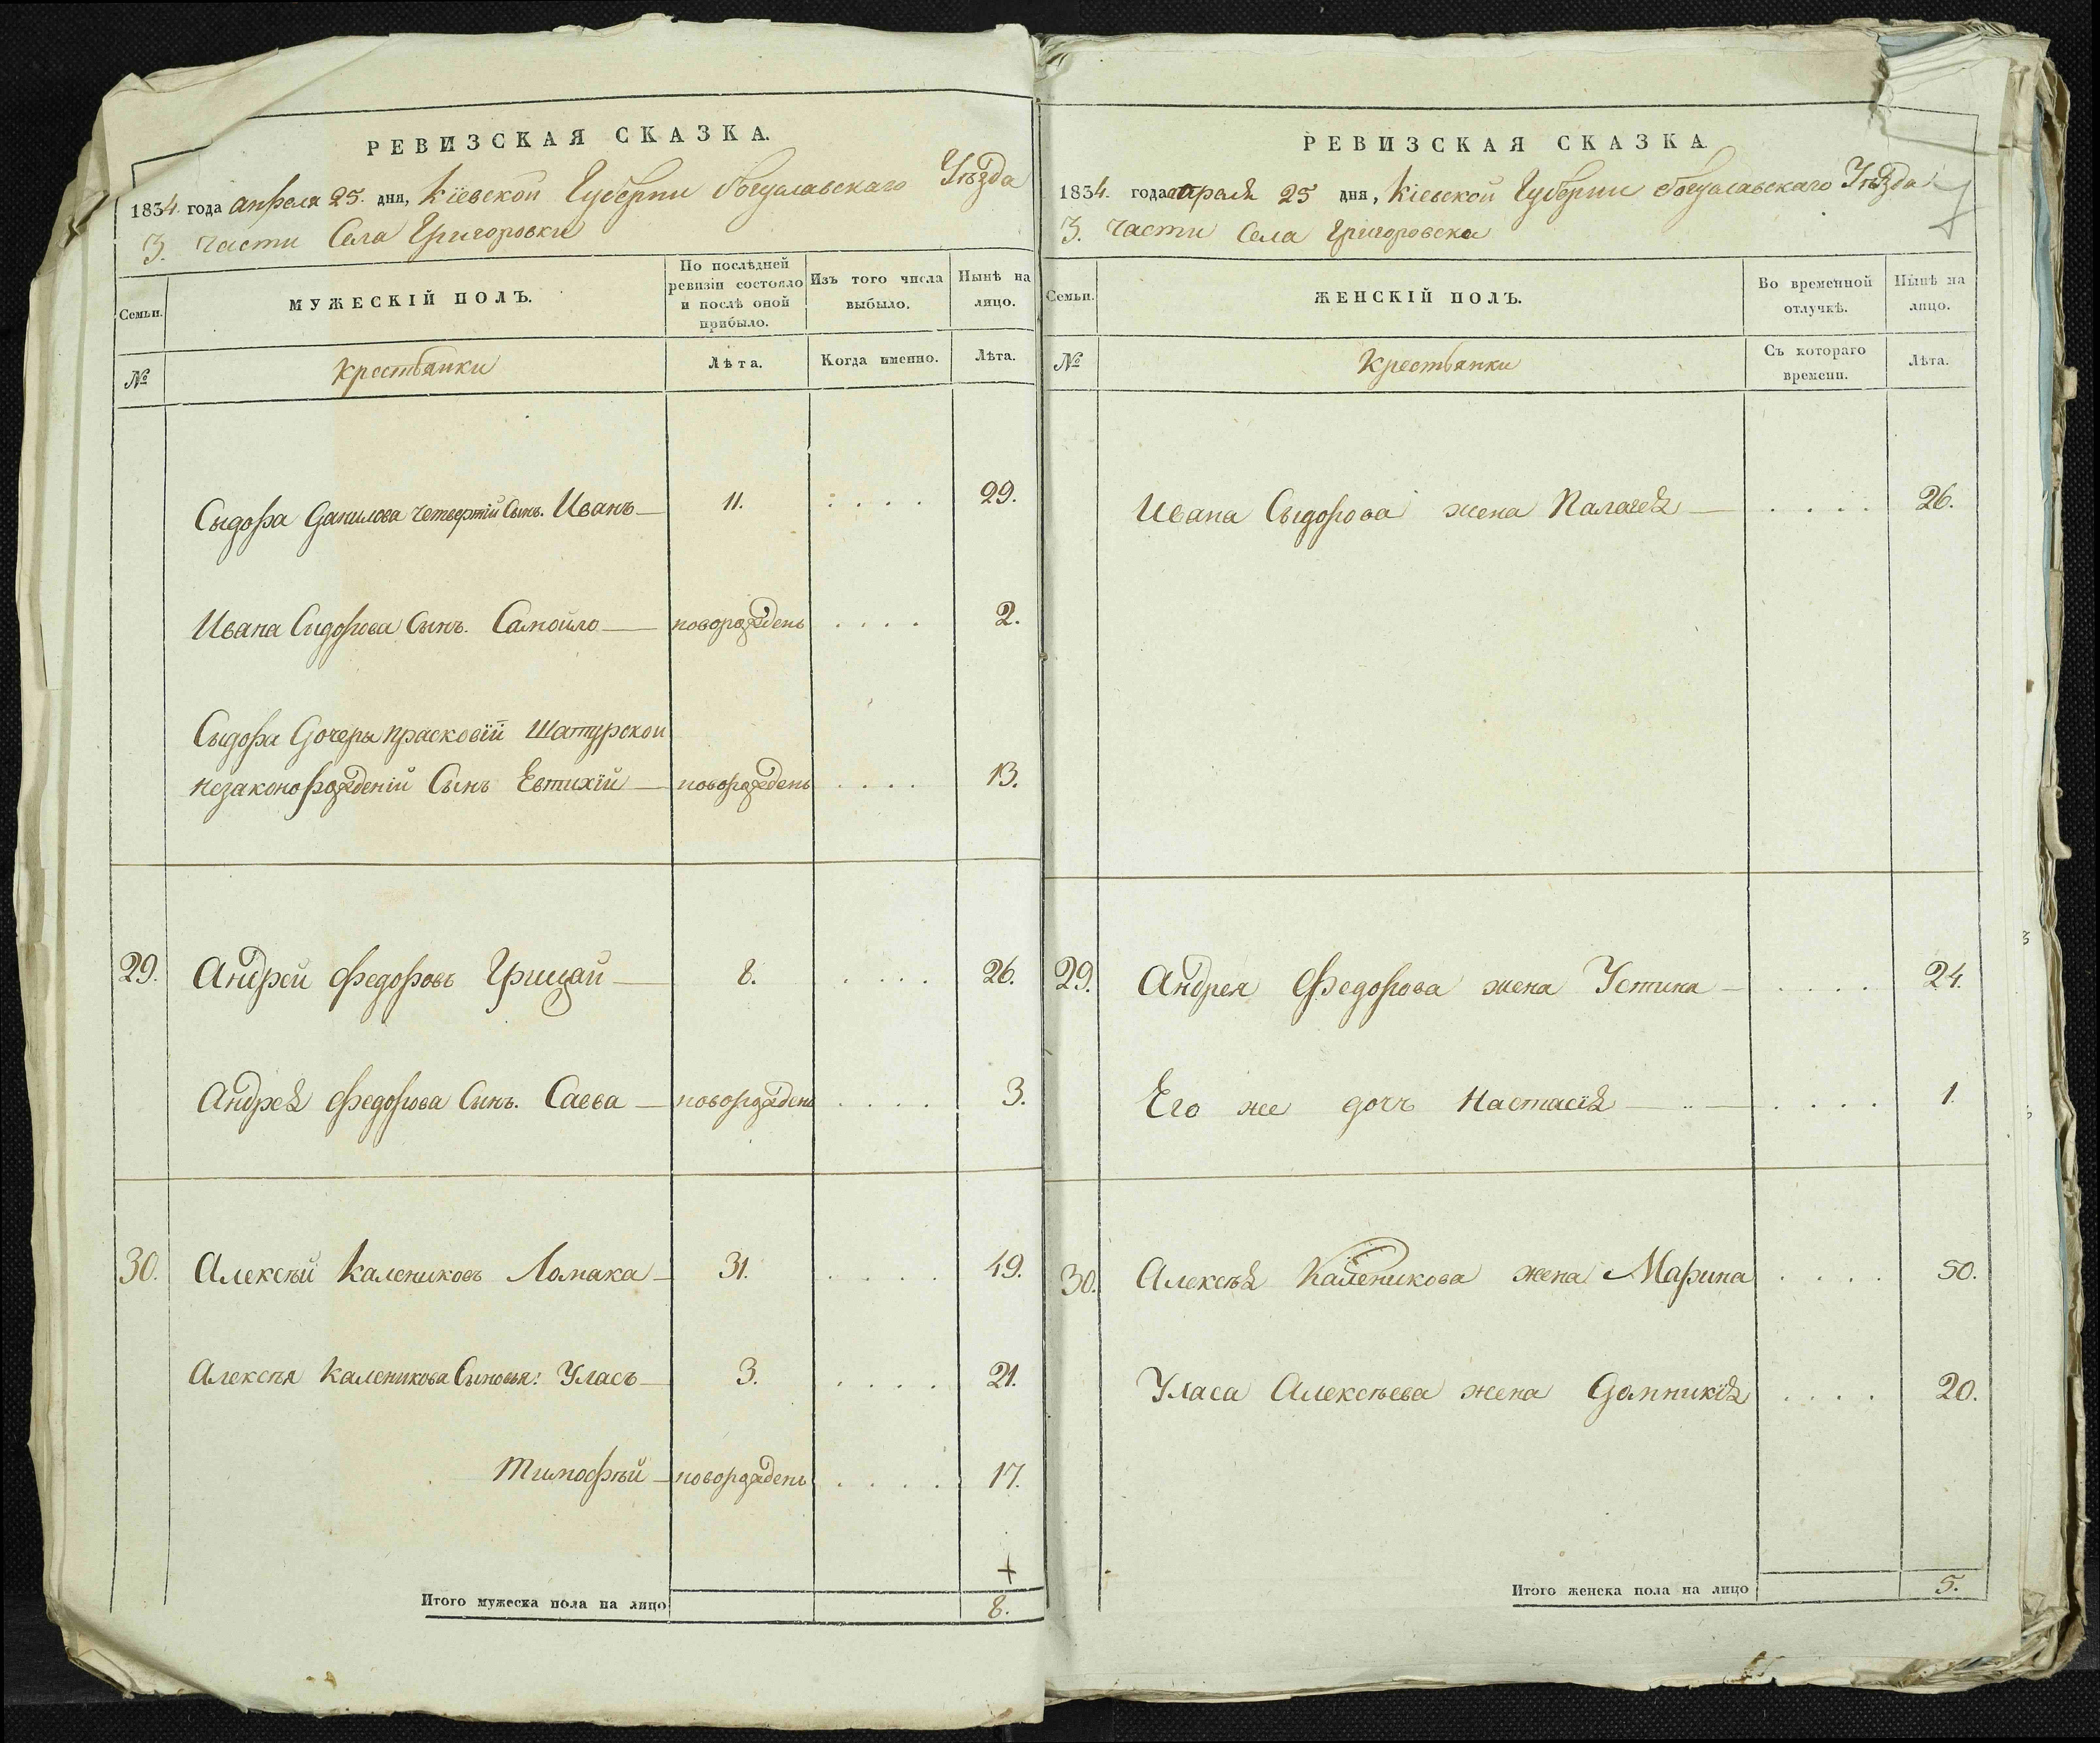 РЕВИЗСКАЯ СКАЗКА.
1834. года апреля 25. дня, Кіевской Губерніи Богуславскаго Уѣзда
3. части Села Григоровки
Семьи.
МУЖЕСКІЙ ПОЛЪ.
По послѣдней ревизіи состояло и послѣ оной прибыло.
Изъ того числа выбыло.
Нынѣ на лицо.
№
Крестьянки
Лѣта.
Когда именно.
Лѣта.
Сыдора Данилова четвертій Сынъ. Иванъ — 11. . . . . 29.
Ивана Сидорова Сынъ. Самойло — новорожденъ . . . . 2.
Сыдора Дочеры Прасковіи Шатурской
незаконорожденій Сынъ Евтихій — новорожденъ . . . . 13.
29. Андрей Федоровъ Грицай — 8. . . . . 26.
Андрея Федорова Сынъ. Савва — новорожденъ . . . . 3.
30. Алексѣй Калениковъ Ломака — 31. . . . . 49.
Алексѣя Каленикова Сыновья: Уласъ — 3. . . . . 21.
Тимофѣй — новорожденъ . . . . 17.
Итого мужеска пола на лицо 8.
РЕВИЗСКАЯ СКАЗКА
1834. года апреля 25 дня, Кіевской Губерніи Богуславскаго Уѣзда
3. части Села Григоровска
Семьи.
ЖЕНСКІЙ ПОЛЪ.
Во временной отлучкѣ.
Нынѣ на лицо.
№
Крестьянки
Съ котораго времени.
Лѣта.
Ивана Сыдорова жена Палагея — . . . . 26.
29. Андрея Федорова жена Устина — . . . . 24.
Его же дочъ Настасія — . . . . 1.
30. Алексѣя Каленикова жена Марина . . . . 50.
Уласа Алексѣева жена Домникія . . . . 20.
Итого женска пола на лицо 5.